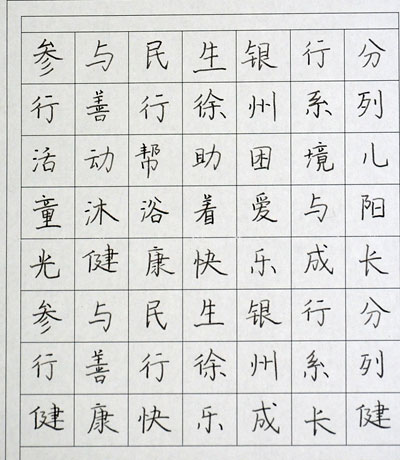 参与民生银行分
行善行徐州系列
活动帮助困境儿
童沐浴着爱与阳
光健康快乐成长
参与民生银行分
行善行徐州系列
健康快乐成长健